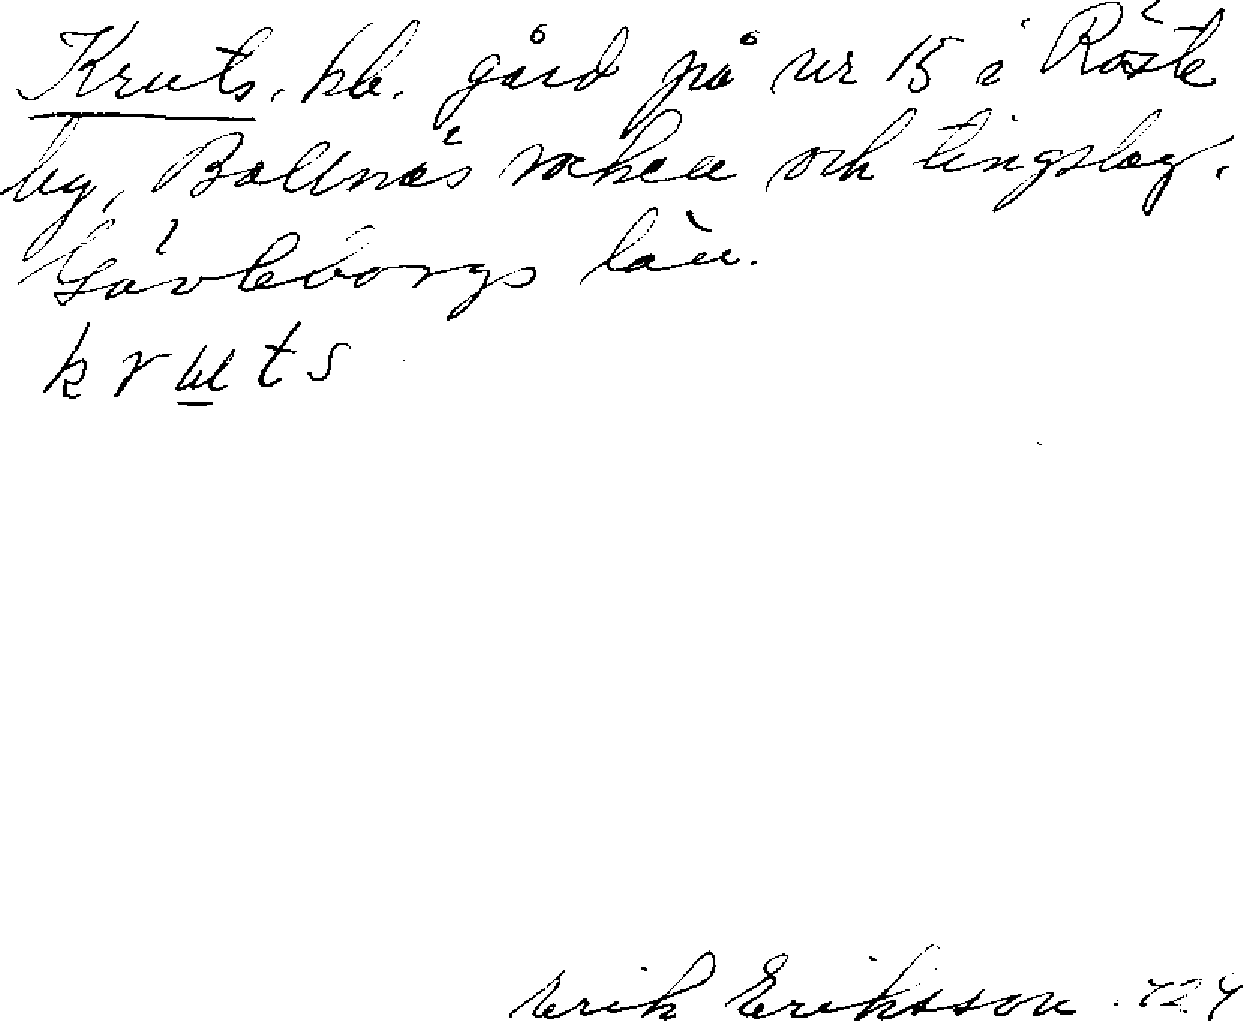 Kruts. kb. gård på nr 15 i Röste
by, Bollnäs socken och tingslag.
Gävleborgs län.
k r u t s
Erik Eriksson